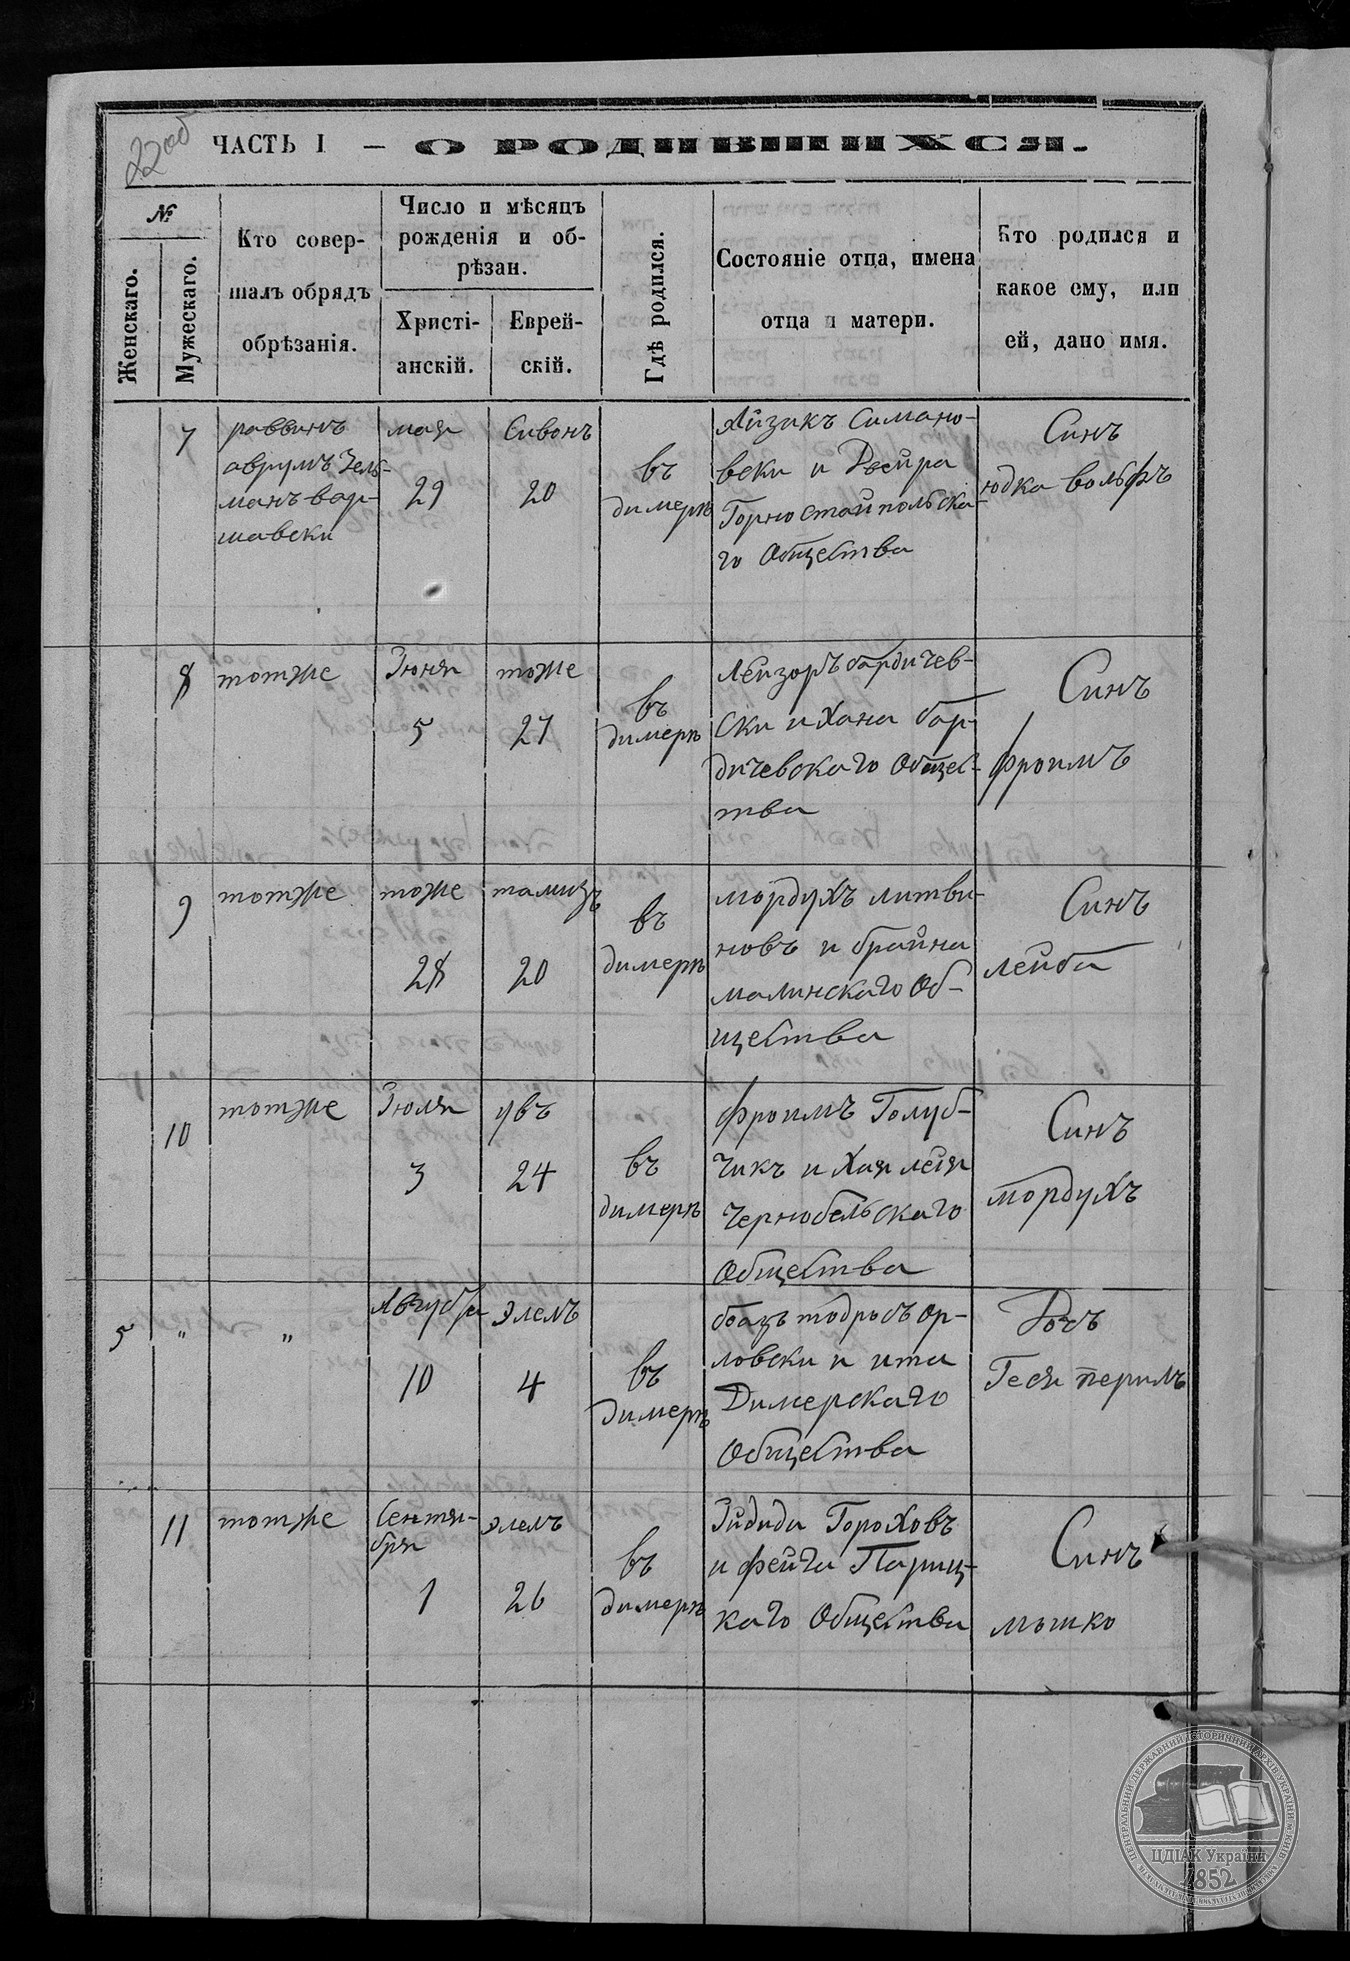 22 об
ЧАСТЬ I — О РОДИВШИХСЯ.
№
Женскаго.
Мужескаго.
Кто совер-
шалъ обрядъ
обрѣзанія.
Число и мѣсяцъ
рожденія и об-
рѣзан.
Христі-
анскій.
Еврей-
скій.
Гдѣ родился.
Состояніе отца, имена
отца и матери.
Кто родился и
какое ему, или
ей, дано имя.
7
раввинъ
аврумъ Зель-
манъ вар-
шавски
мая
29
Сивонъ
20
въ
димерѣ
Айзикъ Симано-
вски и Двейра
Горностайпольска-
го Общества
Синъ
юдка вольфъ
8
тотже
Іюня
5
тоже
27
въ
димерѣ
Лейзоръ бардичев-
Ски и Хана бар-
дичевского Общес-
тва
Синъ
фроимъ
9
тотже
тоже
28
тамизъ
20
въ
димерѣ
мордухъ литви-
новъ и брайна
малинскаго Об-
щества
Синъ
лейба
10
тотже
Іюля
3
увъ
24
въ
димерѣ
фроимъ Голуб-
чикъ и Хая лея
Чернобельскаго
Общества
Синъ
мордухъ
5
„
„
Августа
10
Элелъ
4
въ
димерѣ
боазъ тодросъ ор-
ловски и ита
Димерскаго
Общества
Дочь
Геся перилъ
11
тотже
Сентя-
бря
1
элелъ
26
въ
димерѣ
Зйдиди Гороховъ
и фейга Париц-
каго Общества
Синъ
мошко
ЦЕНТРАЛЬНИЙ ДЕРЖАВНИЙ ІСТОРИЧНИЙ АРХІВ УКРАЇНИ, м.КИЇВ
ЦДІАК України
1852